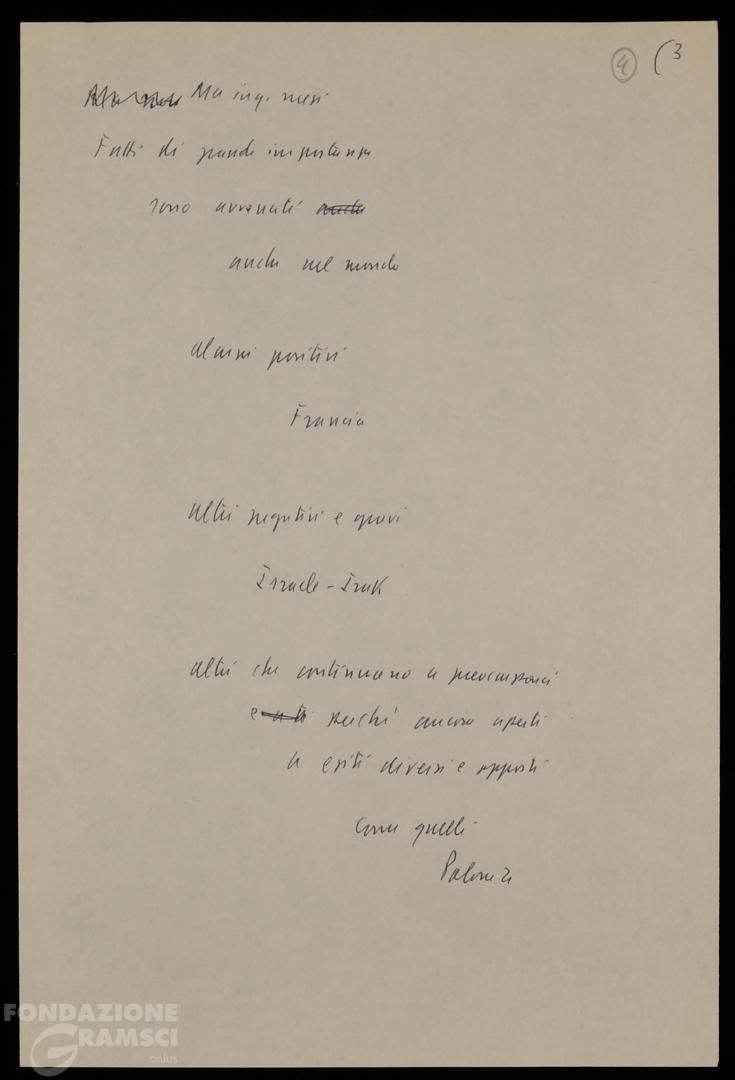 4 (3
Ma in q. mesi
Fatti di grande importanza
sono avvenuti anche
anche nel mondo
alcuni positivi
Francia
altri negativi e gravi
Israele - Irak
altri che continuano a preoccuparci
e perché ancora aperti
a esiti diversi e opposti
come quelli
Polonia
FONDAZIONE
GRAMSCI
onlus